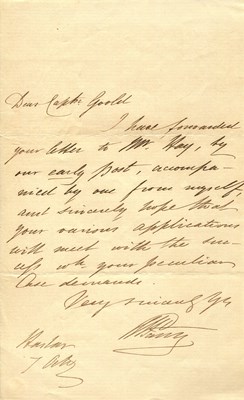 Dear Captn Goold
I have forwarded
your letter to Mr. Hay, by
our early Post, accompa-
nied by one from myself,
and sincerely hope that
your various applications
will meet with the suc-
cess wh. your peculiar
Case demands.
Very sincerely Yrs
Haslar
7